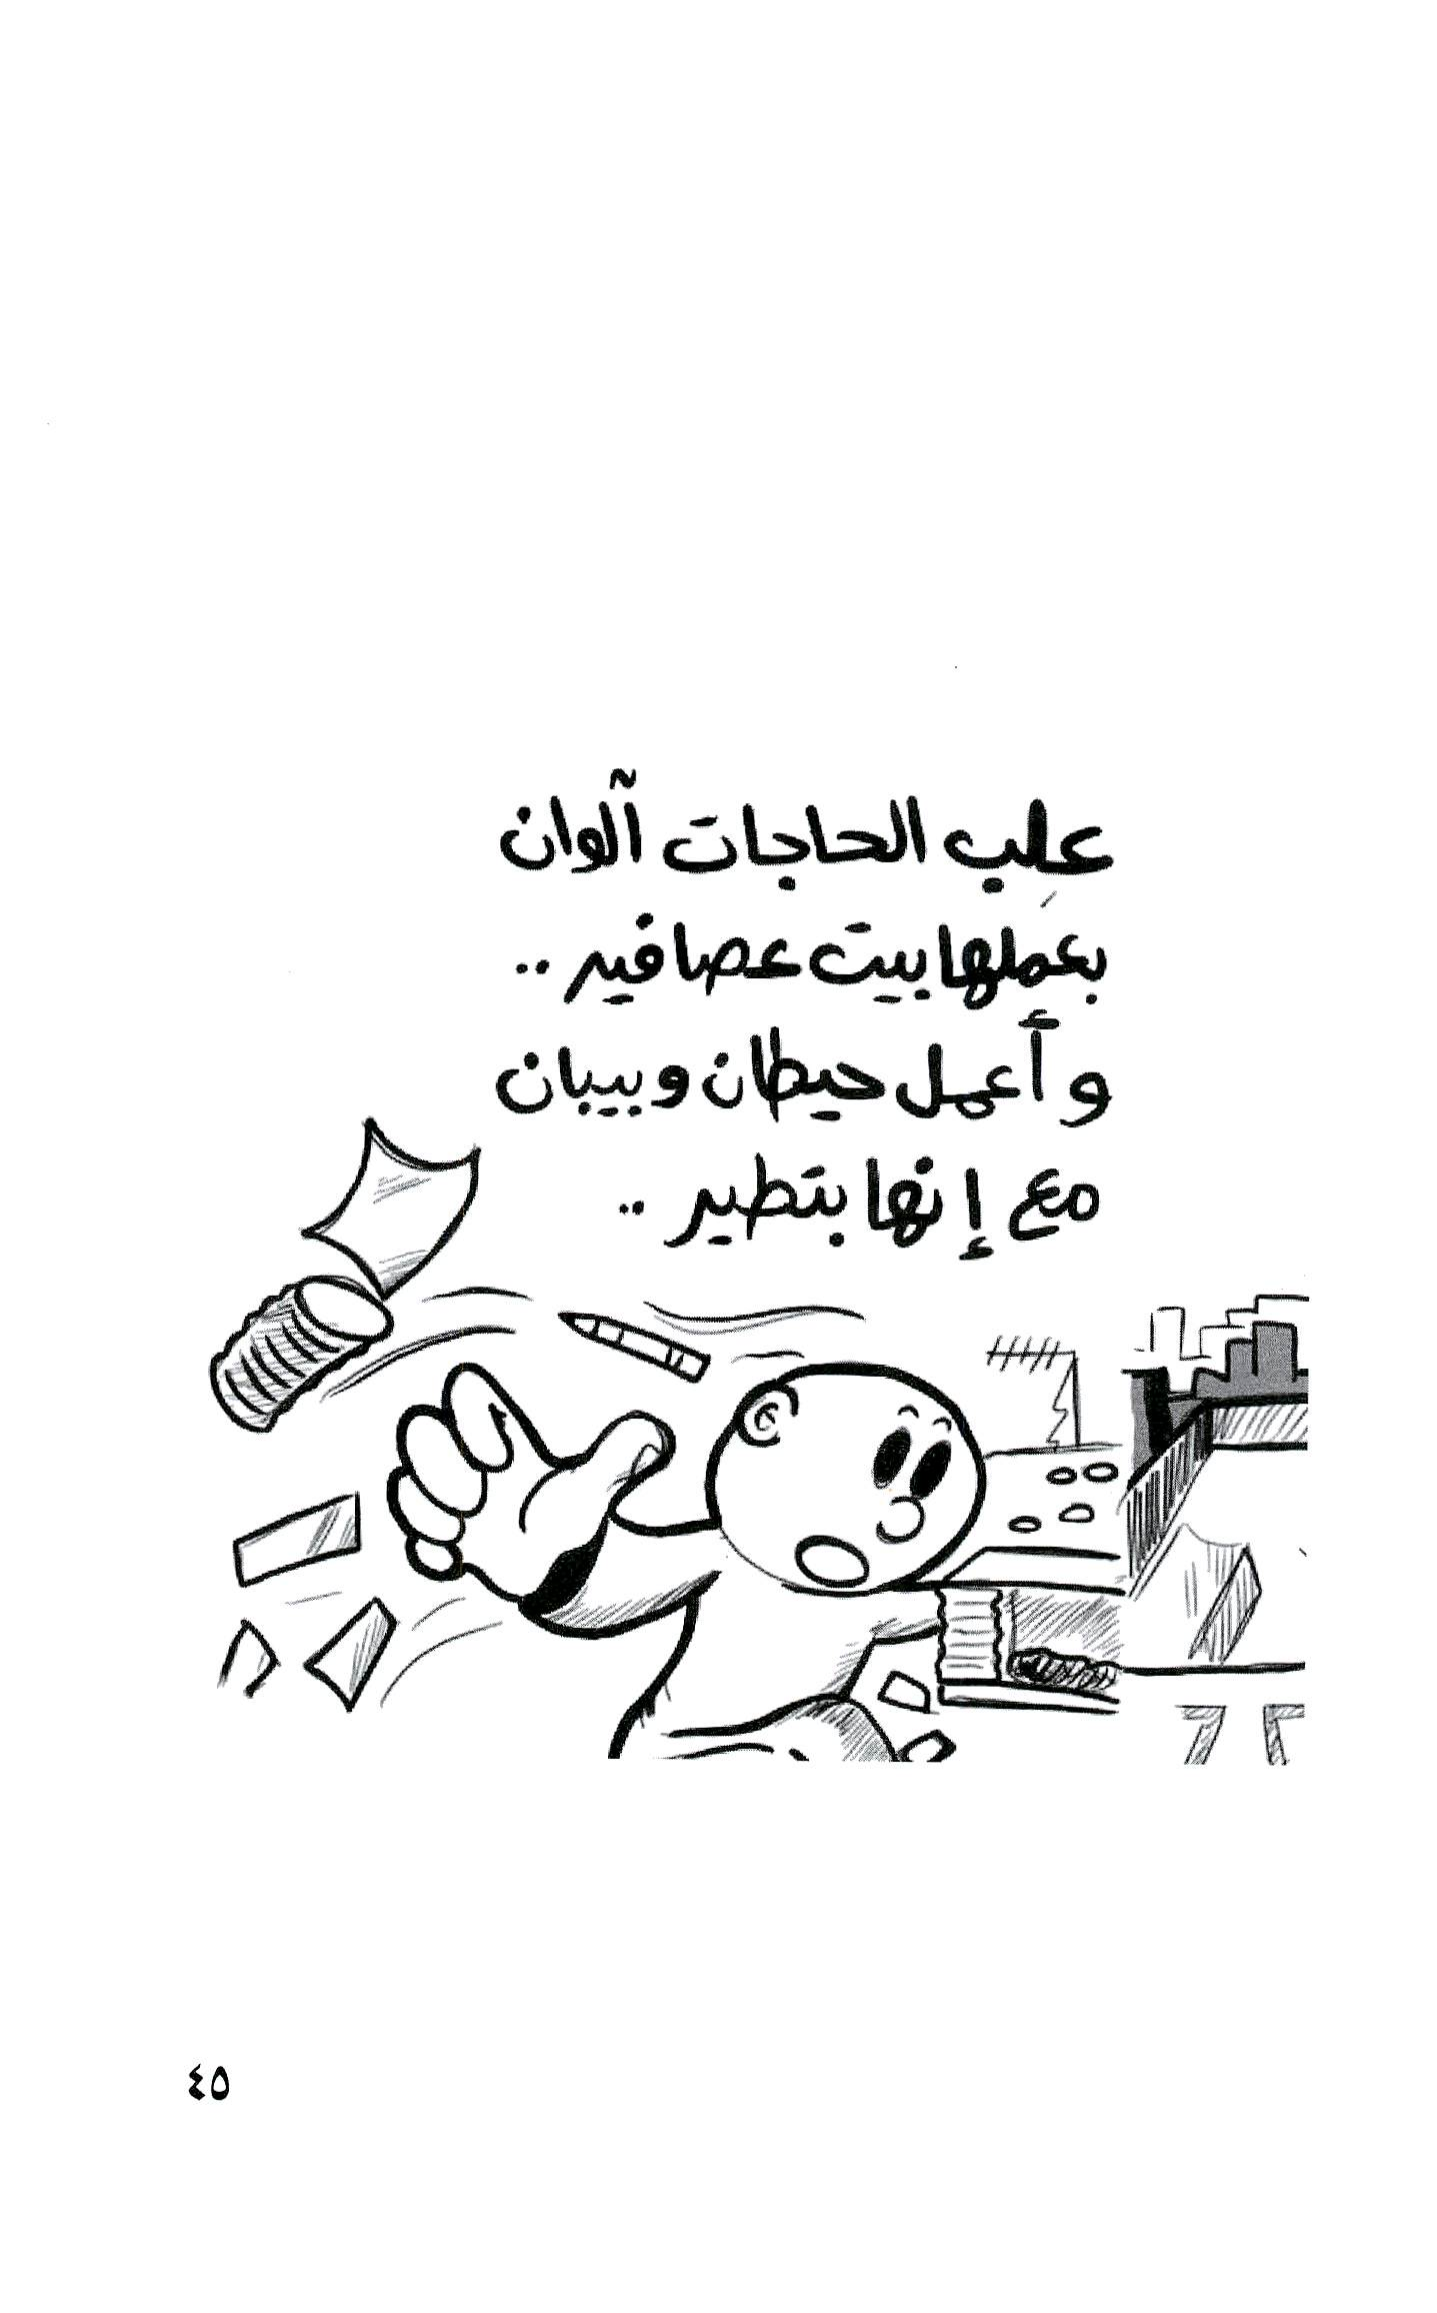 علِب الحاجات آلوان
بعملها بيت عصافير ..
وأعمل حيطان وبيبان
مع إنها بتطير ..
٤٥